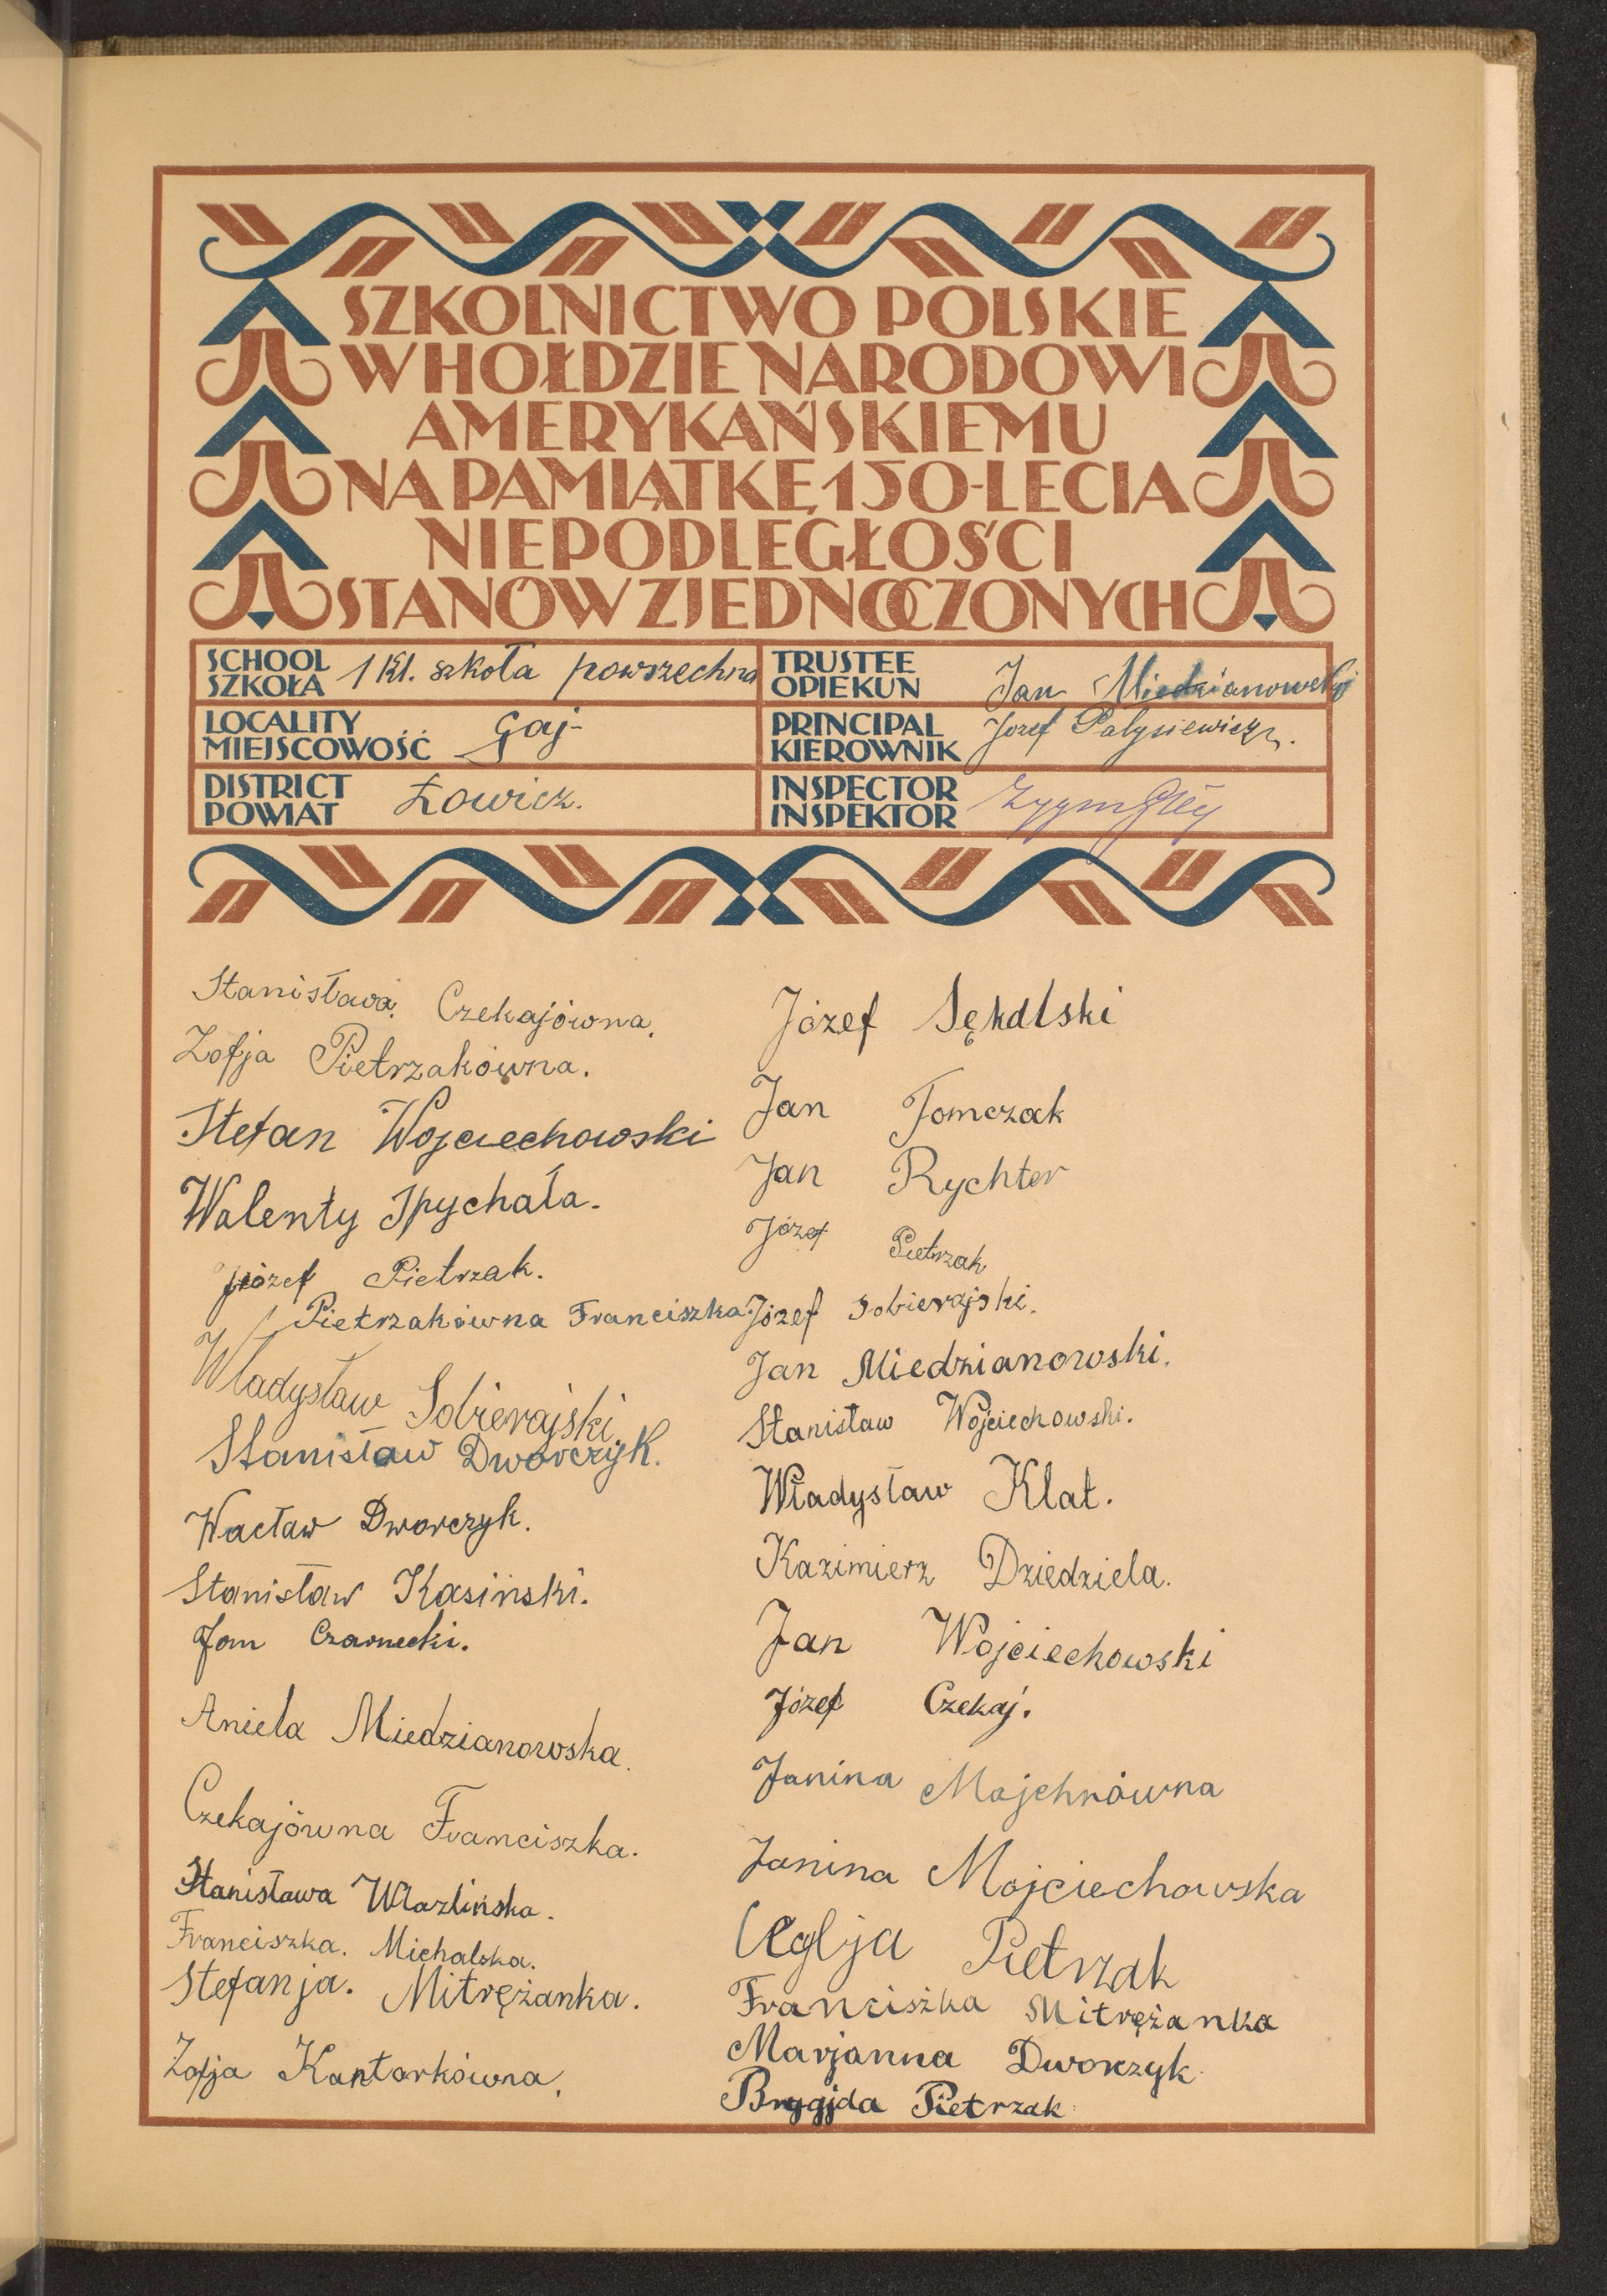 SZKOLNICTWO POLSKIE
W HOŁDZIE NARODOWI
AMERYKAŃSKIEMU
NA PAMIĄTKĘ 150-LECIA
NIEPODLEGŁOŚCI
STANÓW ZJEDNOCZONYCH
SCHOOL
SZKOŁA
1 Kl. szkoła powszechna
TRUSTEE
OPIEKUN
Jan Miedzianowski
LOCALITY
MIEJSCOWOŚĆ
Gaj-
PRINCIPAL
KIEROWNIK
Józef Palysiewicz.
DISTRICT
POWIAT
Łowicz.
INSPECTOR
INSPEKTOR
Stanisława Czekajówna.
Zofja Pietrzakówna.
Stefan Wojciechowski
Walenty Spychała.
Józef Pietrzak.
Pietrzakówna Franciszka.
Władysław Sobierajski
Stanisław Dworczyk.
Wacław Dworczyk.
Stanisław Kasiński.
Jan Czarnecki.
Aniela Miedzianowska.
Czekajówna Franciszka.
Stanisława Wlazlińska.
Franciszka. Michalska.
Stefanja. Mitrężanka.
Zofja Kantorkówna.
Józef
Jan Tomczak
Jan Rychter
Józef Pietrzak
Józef Sobierajski.
Jan Miedzianowski.
Stanisław Wojciechowski.
Władysław Klat.
Kazimierz Dziedziela.
Jan Wojciechowski
Józef Czekaj.
Janina Majchrówna
Janina Mojciechowska
Pietrzak
Franciszka Mitrężanka
Marjanna Dworczyk
Brygjda Pietrzak